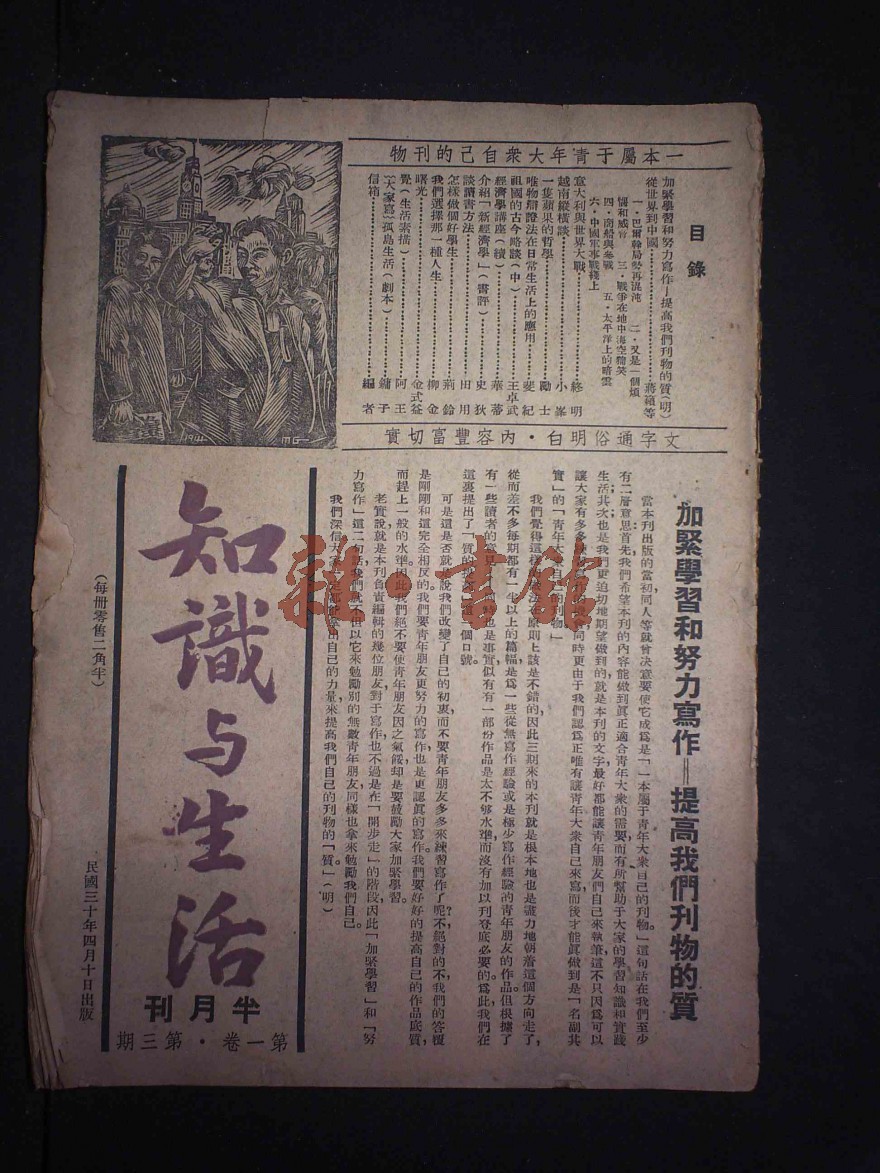 一本屬于青年大衆自己的刊物
目錄
加緊學習和努力寫作—提高我們刊物的質(明)
從世界到中國……蔣穎等
一．巴爾幹局勢再混沌　二．又是一個煩
惱和威脅　三．戰爭在地中海空獰笑
四．南船與參戰　五．太平洋上的暗雲
六．中國軍事戰綫上
意大利與世界大戰……終明
越南縱橫談……小峯
一隻蘋果的哲學……勵士
唯物辯證法在日常生活上的應用……斐紀
祖國的古今略談(中)……王卓武
經濟學講座(續)……華蒂
介紹「新經濟學」(書評)……史狄
談讀書方法……田用
怎樣做個好學生……荊鈴
我們選擇那一種人生……柳金
曙光……金式益
覺(生活素描)……阿王
「大家寫」孤島生活(劇本)……鏽子
信箱……編者
文字通俗明白．內容豐富切實
加緊學習和努力寫作＝提高我們刊物的質
當本刊出版的當初同人等就曾决意要使它成爲是「一本屬于青年大衆自己的刊物」。這句話在我們至少
有二層意思：首先，我們希望本刊的內容能做到眞正適合青年大衆的需要，而有所幫助于大家的學習知識和實踐
生活；其次，也是我們更迫切地期望做到的，就是本刊的文字最好都能讓青年朋友們自己來執筆，這不只因爲可以
讓大家有多多練習寫作的機會，同時更由于我們認爲正唯有讓青年大衆自己來寫，而後才能眞做到是「名副其
實」的「青年大衆自己的刊物」
我們覺得這樣的做法在原則上該是不錯的，因此三期來的本刊就是根本地也是盡力地朝着這個方向走了，
從而差不多每期都有一半以上的篇幅是爲一些從無寫作經驗或是極少寫作經驗的青年朋友的作品。但根據了
有一些讀者的意見，同時也是事實，似有有一部份作品是太不够水準，而沒有加以刊登底必要的。爲此，我們在
這裏提出了「質的提高」這一個口號。
可是這是否就是說我們改變了自己的初衷，而不要青年朋友多多來練習寫作了呢？不，絕對的不，我們的答覆
是剛剛和這完全相反的，我們要青年朋友更努力的寫作，也是更認眞的寫作。我們要好好的提高自己的作品底質，
而趕上一般的水準。因此我們絕不要使青年朋友因之氣餒，却是要鼓勵大家加緊學習。
老實說，就是本刊負責編輯的幾位朋友，對于寫作也不過是在「開步走」的階段，因此「加緊學習」和「努
力寫作」這二句話，我們就不但以它來勉勵別的無數青年朋友，同樣也拿來勉勵我們自己。
我們深信大家一定都能拿出自己的力量來提高我們自己的刊物的「質」。(明)
1941
MG
知識与生活
半月刊
第一卷．第三期
(每冊零售二角半)
民國三十年四月十日出版
雜·書館